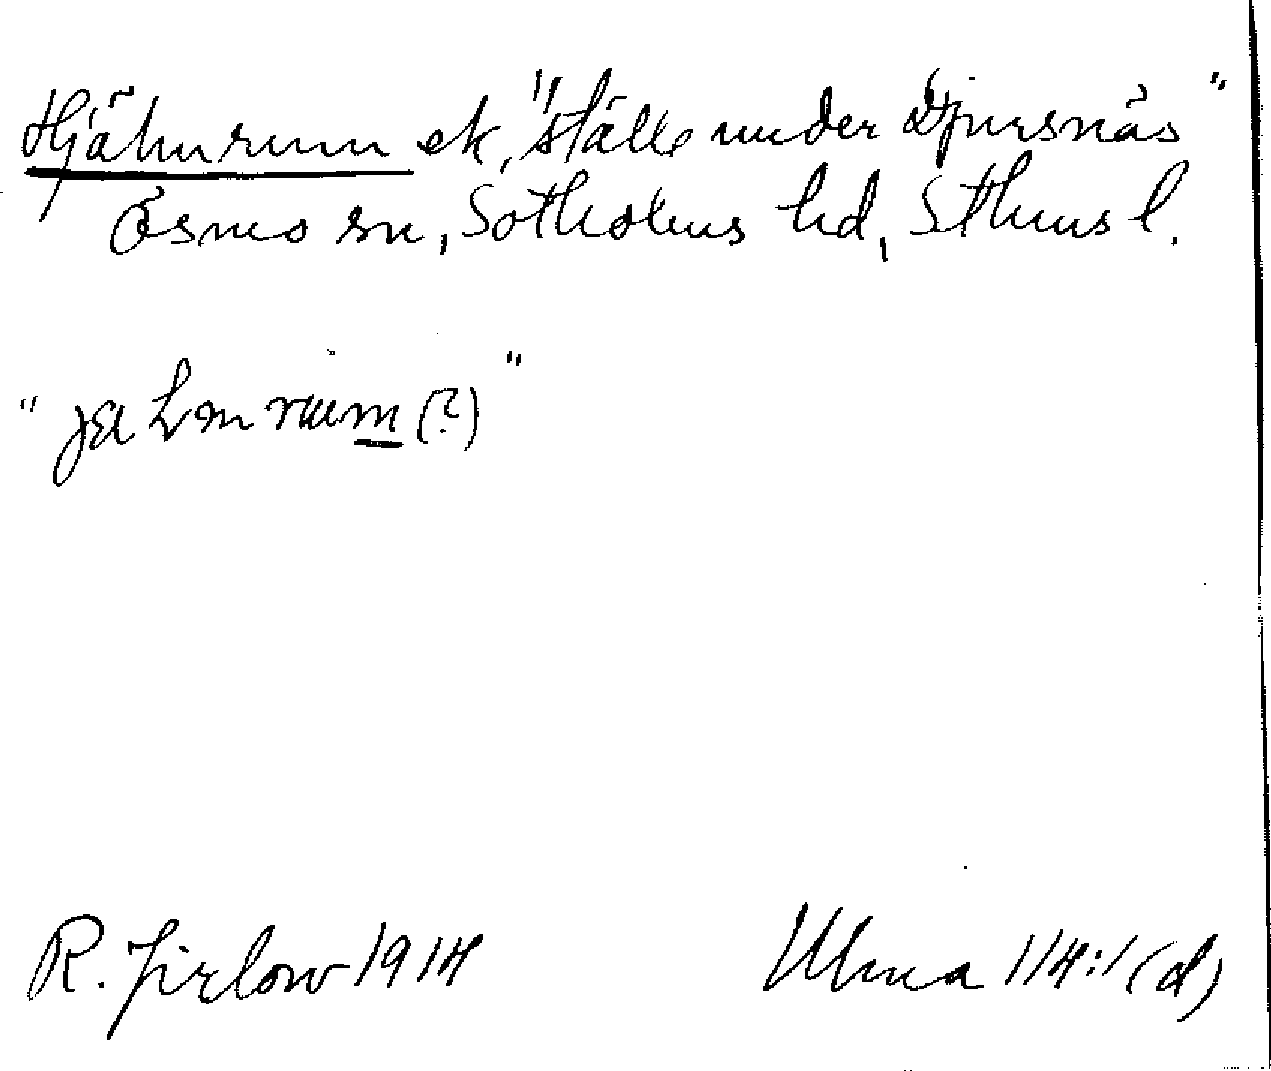 Hjälmrum ek, "ställe under Djursnäs"
Ösmo sn, Sotholms hd, Sthms l.
(?)"
R. Jirlow 1914
Ulma 114:1 (d)